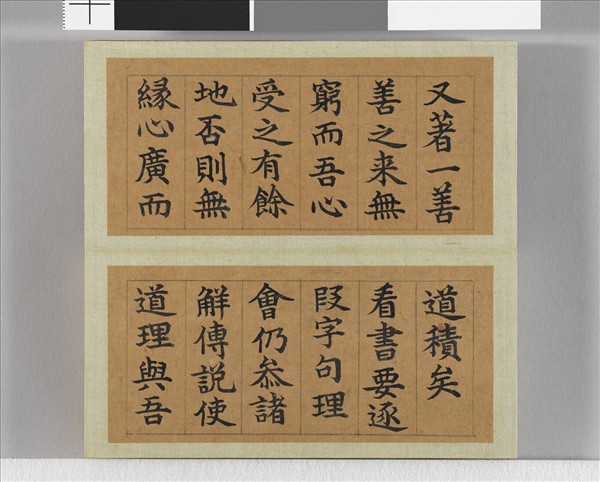 又著一善
善之来無
窮而吾心
受之有餘
地否則無
縁心廣而
道積矣
看書要逐
段字句理
會仍叅諸
解傳説使
道理與吾